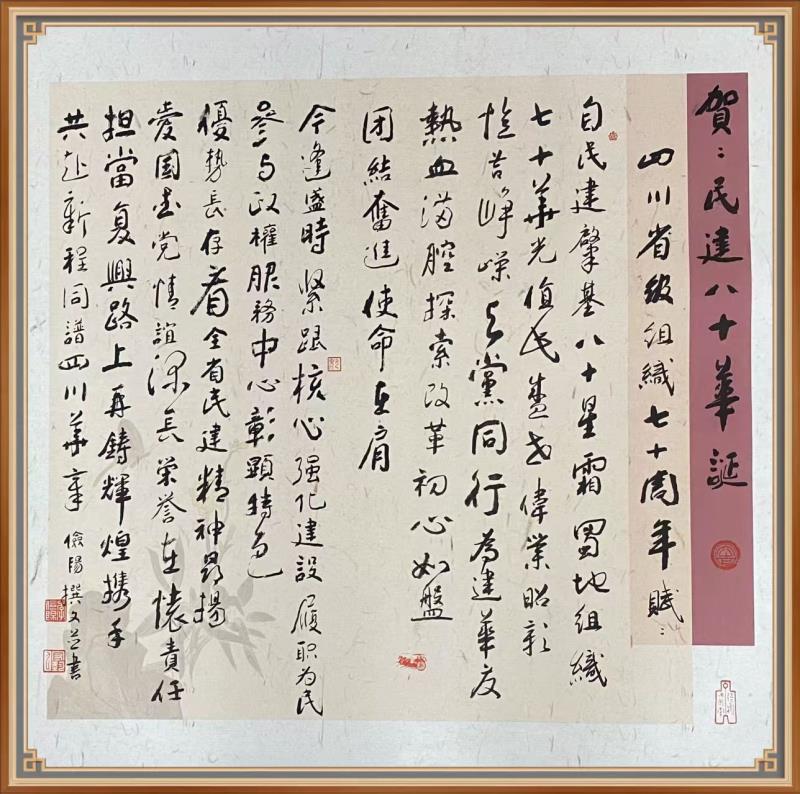 賀：民建八十華誕
四川省級組織七十周年賦：
自民建肇基八十星霜蜀地組織
七十華光值民盛世偉業昭彰
憶昔崢嶸与黨同行為建華夏
熱血满腔探索改革初心如盤
团結奮進使命在肩
今逢盛時緊跟核心强化建設履职为民
參与政權服務中心彰顯特色
優勢長存看全省民建精神昂揚
愛国愛党情誼深長榮誉在懷責任
担當复興路上再鑄輝煌携手
共赴新程同譜四川華章
儉陽撰文並書